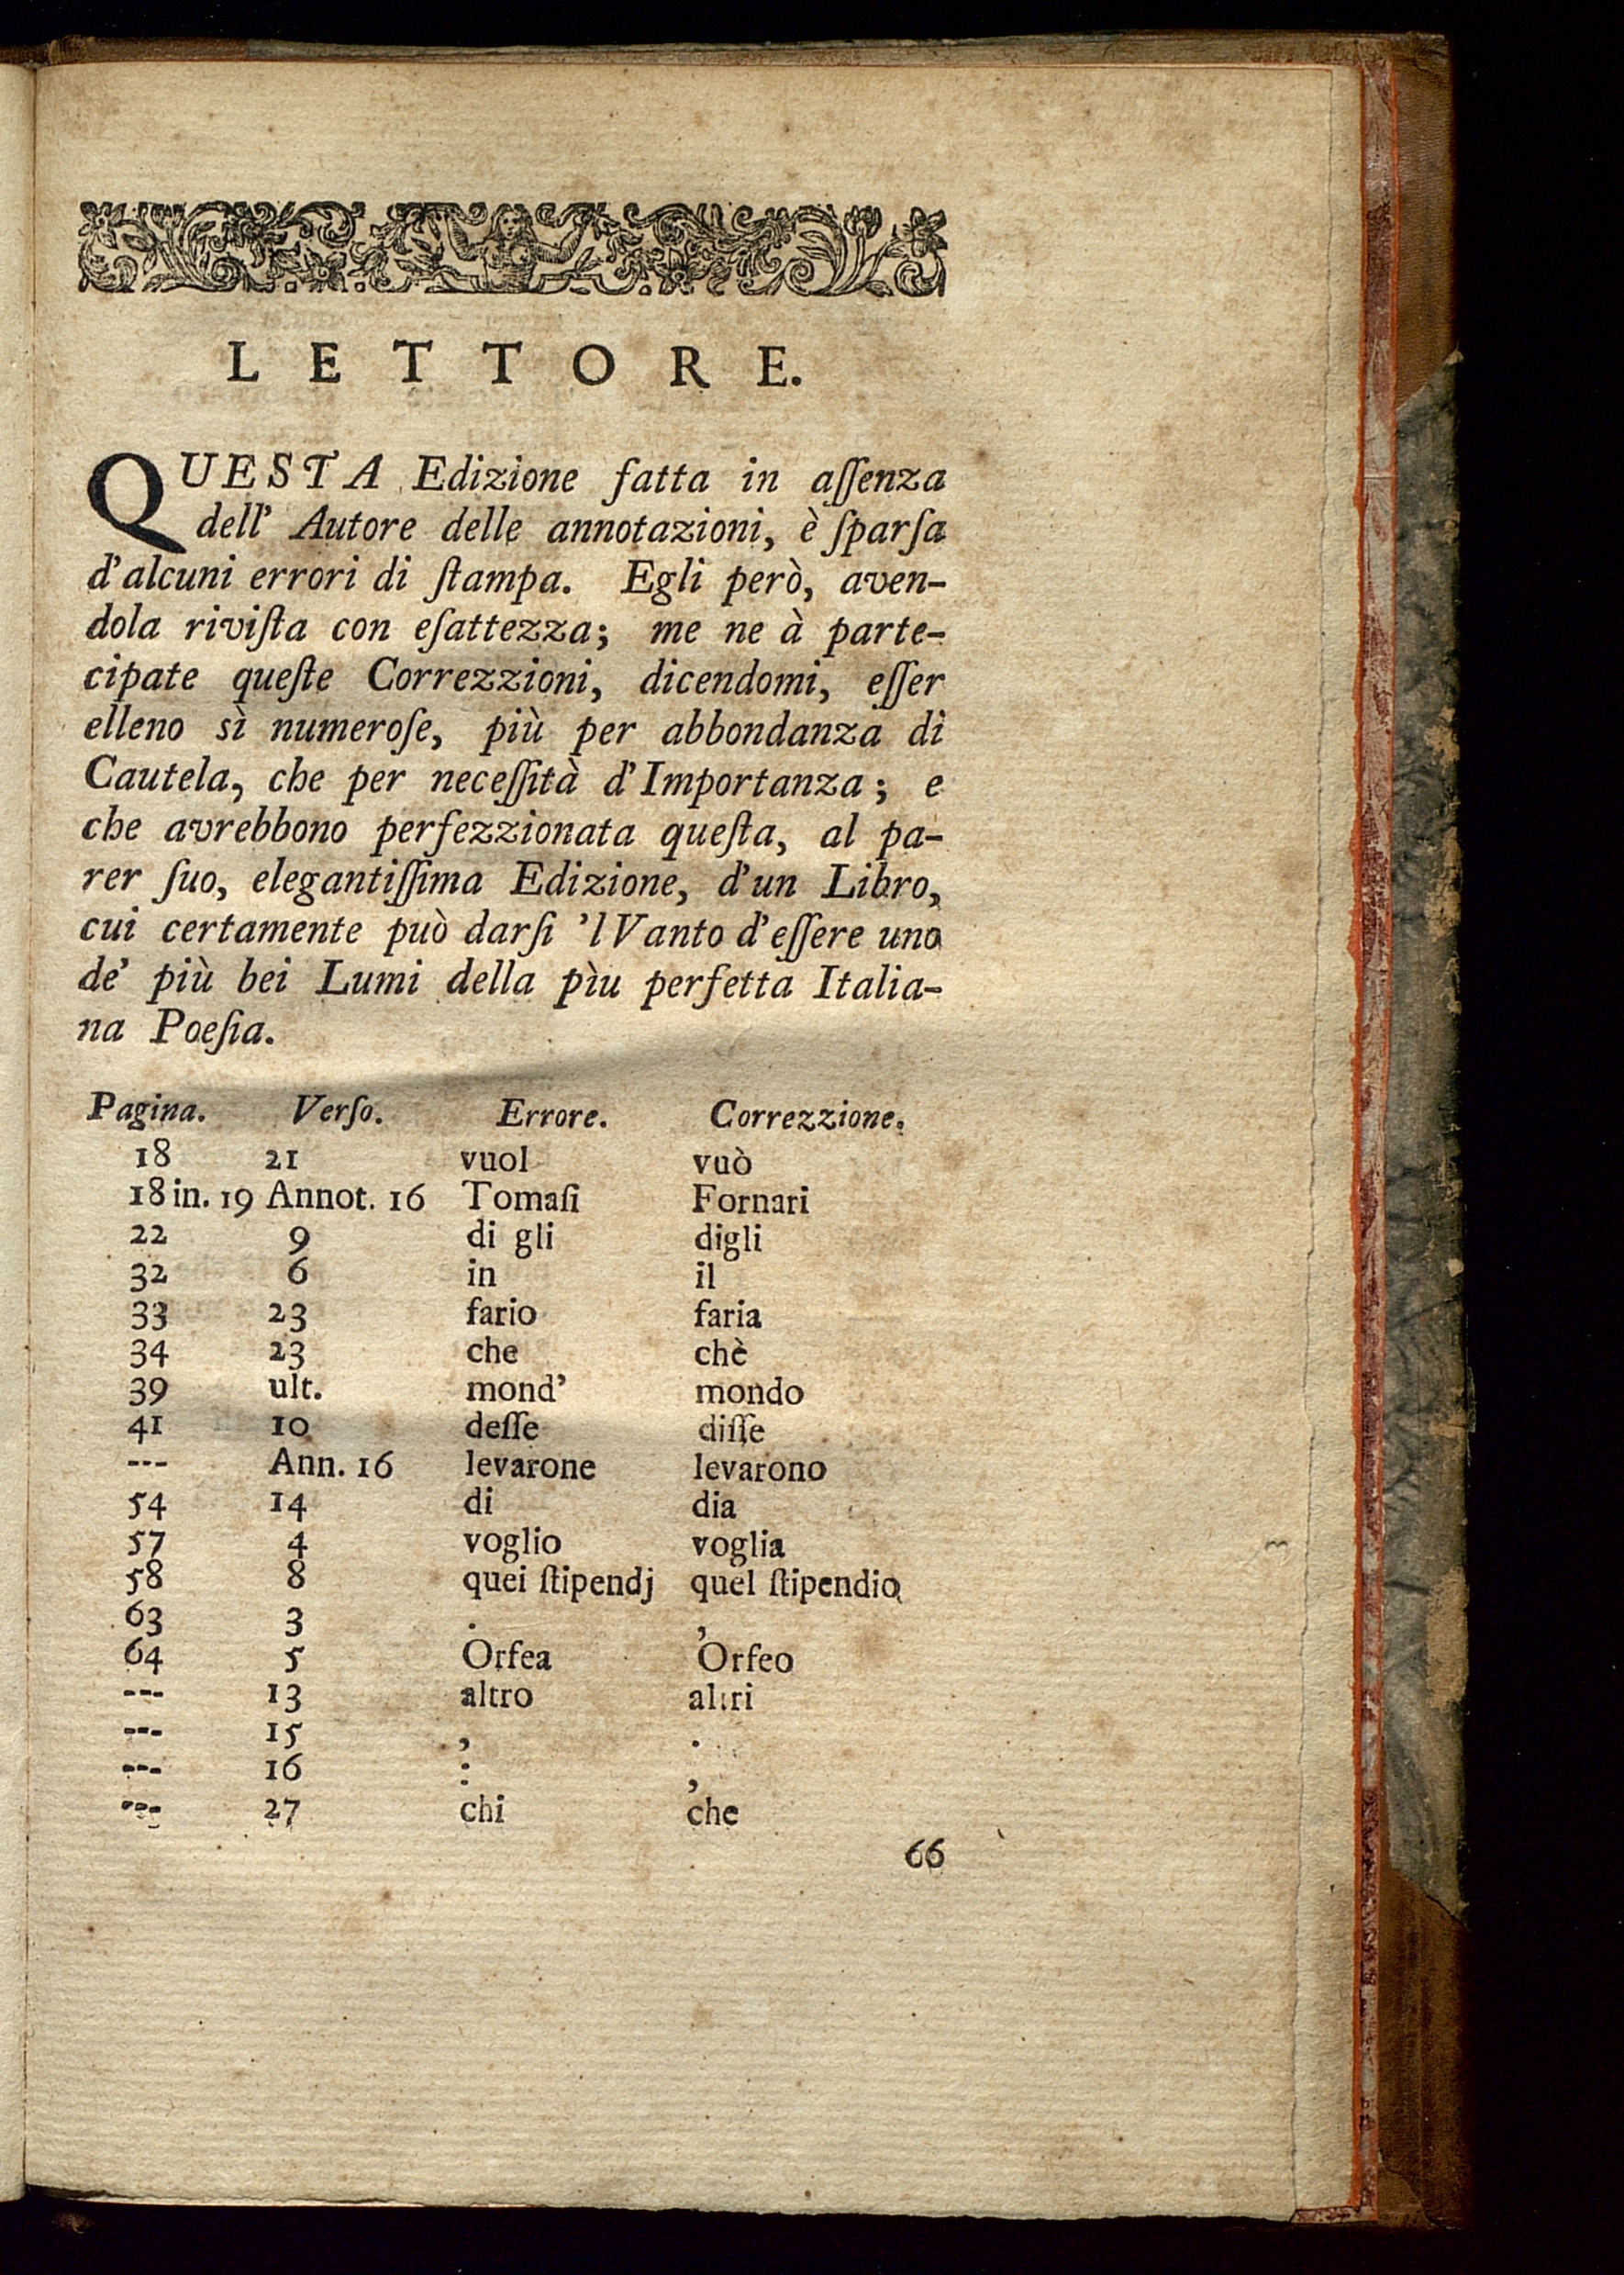 LETTORE.
QUESTA Edizione fatta in aſſenza
dell' Autore delle annotazioni, è ſparſa
d'alcuni errori di ſtampa. Egli però, aven-
dola riviſta con eſattezza; me ne à parte-
cipate queſte Correzzioni, dicendomi, eſſer
elleno sì numeroſe, più per abbondanza di
Cautela, che per neceſſità d'Importanza; e
che avrebbono perfezzionata queſta, al pa-
rer ſuo, elegantiſſima Edizione, d'un Libro,
cui certamente può darſi 'l Vanto d'eſſere uno
de' più bei Lumi della pìu perfetta Italia-
na Poeſia.
Pagina. Verſo. Errore. Correzzione.
18 21 vuol vuò
18 in. 19 Annot. 16 Tomaſi Fornari
22 9 di gli digli
32 6 in il
33 23 fario faria
34 23 che chè
39 ult. mond' mondo
41 10 deſſe diſſe
--- Ann. 16 levarone levarono
54 14 di dia
57 4 voglio voglia
58 8 quei ſtipendj quel ſtipendio
63 3 . ,
64 5 Orfea Orfeo
--- 13 altro altri
--- 15 , .
--- 16 : ,
--- 27 chi che
66